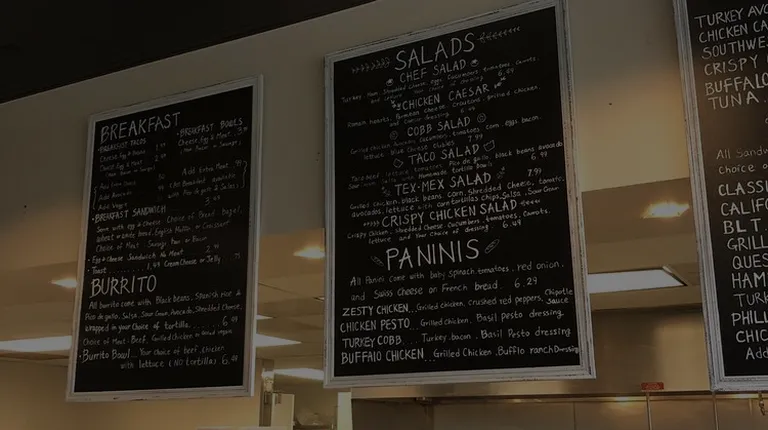 BREAKFAST
•BREAKFAST TACOS
•BREAKFAST BOWLS
Cheese, Egg & Potato
Cheese, Egg & Meat
Cheese, Egg & Meat
Add Extra Meat
Add Avocado
Add Veggie
with Pico de gallo & Salsa
•BREAKFAST SANDWICH
Serve with egg & cheese. Choice of Bread: Bagel,
wheat, white bread, English Muffin or Croissant
Choice of Meat: Sausage, Ham or Bacon
• Egg & Cheese Sandwich No Meat
• Toast 1.49 Cream Cheese or Jelly .75
BURRITO
All burrito come with Black beans, Spanish rice &
Pico de gallo, Salsa, Sour Cream, Avocado, Shredded Cheese,
wrapped in your choice of tortilla. 6.49
Choice of Meat: Beef, Grilled Chicken or
•Burrito Bowl... Your choice of beef, chicken
with lettuce (NO tortillas). 6.49
SALADS
CHEF SALAD
Turkey, Ham, Shredded Cheese, eggs, Cucumbers, tomatoes, Carrots,
6.49
CHICKEN CAESAR
Romain hearts, Parmesan cheese, Croutons, grilled chicken,
Caesar dressing. 6.49
COBB SALAD
Grilled chicken, avocado, Cucumber, tomato, corn, eggs, bacon,
lettuce, blue cheese 7.99
TACO SALAD
lettuce, tomatoes, Pico de gallo, black beans, avocado
Sour with Homemade tortilla Bowls 6.99
TEX-MEX SALAD 7.99
Grilled chicken, black beans, Corn, Shredded Cheese, tomato,
avocados, lettuce with corn tortillas chips, Salsa, Sour Cream
CRISPY CHICKEN SALAD
Crispy Chicken, Shredded Cheese, Cucumbers, tomatoes, Carrots,
lettuce and Your Choice of dressing. 6.49
PANINIS
All Panini come with baby spinach, tomatoes, red onion,
and Swiss Cheese on French bread. 6.29
ZESTY CHICKEN... Grilled chicken, crushed red peppers, Chipotle sauce
CHICKEN PESTO... Grilled Chicken, Basil pesto dressing
TURKEY COBB... Turkey, bacon, Basil Pesto dressing
BUFFALO CHICKEN... Grilled Chicken, Bufflo ranch Dressing
TURKEY AVO
CHICKEN CA
SOUTHWES
CRISPY
BUFFALO
TUNA
All Sandw
Choice o
CLASSI
CALIFO
B.L.T.
GRILL
QUES
HAM
TURK
PHILL
CHIC
Add